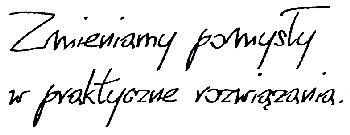 Zmieniamy pomysły
w praktyczne rozwiązania.